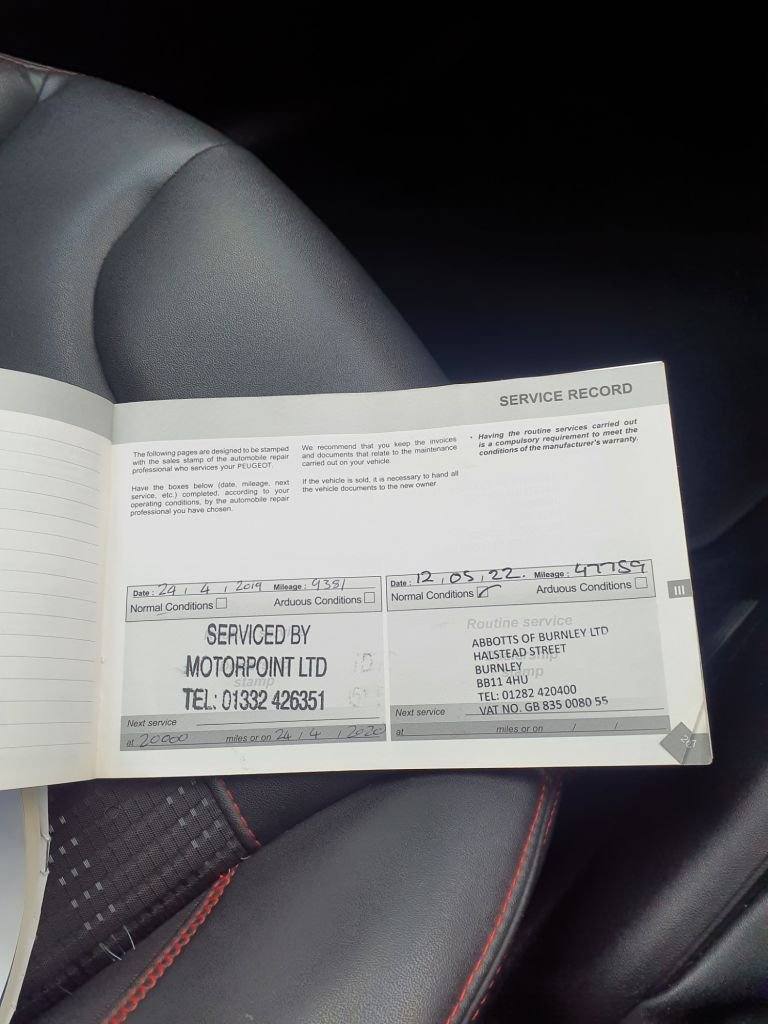 SERVICE RECORD
The following pages are designed to be stamped
with the sales stamp of the automobile repair
professional who services your PEUGEOT.
Have the boxes below (date, mileage, next
service, etc.) completed, according to your
operating conditions, by the automobile repair
professional you have chosen.
We recommend that you keep the invoices
and documents that relate to the maintenance
carried out on your vehicle.
If the vehicle is sold, it is necessary to hand all
the vehicle documents to the new owner.
• Having the routine services carried out
is a compulsory requirement to meet the
conditions of the manufacturer's warranty.
Date : 24 / 4 / 2019 Mileage : 9381
Normal Conditions Arduous Conditions
SERVICED BY
MOTORPOINT LTD
stamp
TEL: 01332 426351
Next service
at 20000 miles or on 24 / 4 / 2020
Date : 12 / 05 / 22. Mileage : 47759
Normal Conditions Arduous Conditions
Routine service
ABBOTTS OF BURNLEY LTD
HALSTEAD STREET
BURNLEY
BB11 4HU
TEL: 01282 420400
VAT NO. GB 835 0080 55
Next service
at miles or on / /
III